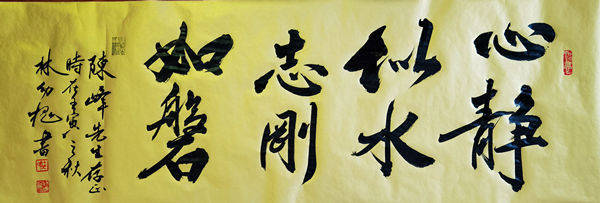 心静
似水
志剛
如磐
陳峰先生存正
時在壬寅之秋
林幼 書